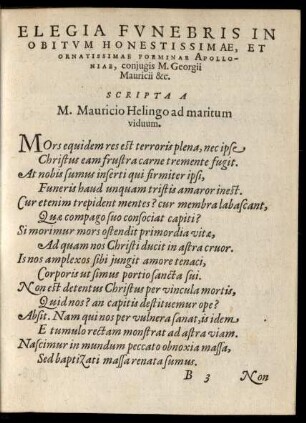 ELEGIA FVNEBRIS IN
OBITVM HONESTISSIMAE, ET
ORNATISSIMAE FORMINAE APOLLO-
NIAE, conjugis M. Georgii
Mauricii &c.
SCRIPTA A
M. Mauricio Helingo ad maritum
viduum.
MOrs equidem res est terroris plena, nec ipse
Christus eam frustra carne tremente fugit.
At nobis sumus inserti qui firmiter ipsi,
Funeris haud unquam tristis amaror inest.
Cur etenim trepident mentes? cur membra labascant,
Quæ compago suo consociat capiti?
Si morimur mors ostendit primordia vitæ,
Ad quam nos Christi ducit in astra cruor.
Is nos amplexos sibi jungit amore tenaci,
Corporis ut simus portio sancta sui.
Non est detentus Christus per vincula mortis,
Quid nos? an capitis destituemur ope?
Absit. Nam qui nos per vulnera sanat, is idem
E tumulo rectam monstrat ad astra viam.
Nascimur in mundum peccato obnoxia massa,
Sed baptizati massa renata sumus.
B 3 Non